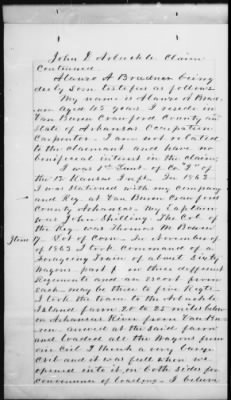 John D Arbuckle Claim
Continued
Alonzo A Bradner being
duly Sworn testifies as follows
My name is Alonzo A Brad-
ner aged 45 years I reside in
Van Buren Crawford County and
State of Arkansas Occupation
Carpenter - I am not related
to the claimant and have no
beneficial interest on the claim,
I was 1st Lieut of Co. "D" of
the 12 Kansas Inf. In 1863
I was stationed with my company
and Reg at Van Buren Crawford
County Arkansas. My Captain
was John Shilling. The Col of
the Reg was Thomas M Bowen
Item 7. Lot of Corn - In November of
of 1863 I took Command of a
Foraging Train of about Sixty
Wagons part of in three different
Regiments and an escort from
each - may be three to five Regts -
I took the train to the Arbuckle
Island farm 20 to 25 miles below
on Arkansas River from Van Bu-
ren - arrived at the said farm
and loaded all the Wagons from
one Crib I think a very large
Crib and it was full when we
opened into it, on both sides for
convenience of loading - I believe